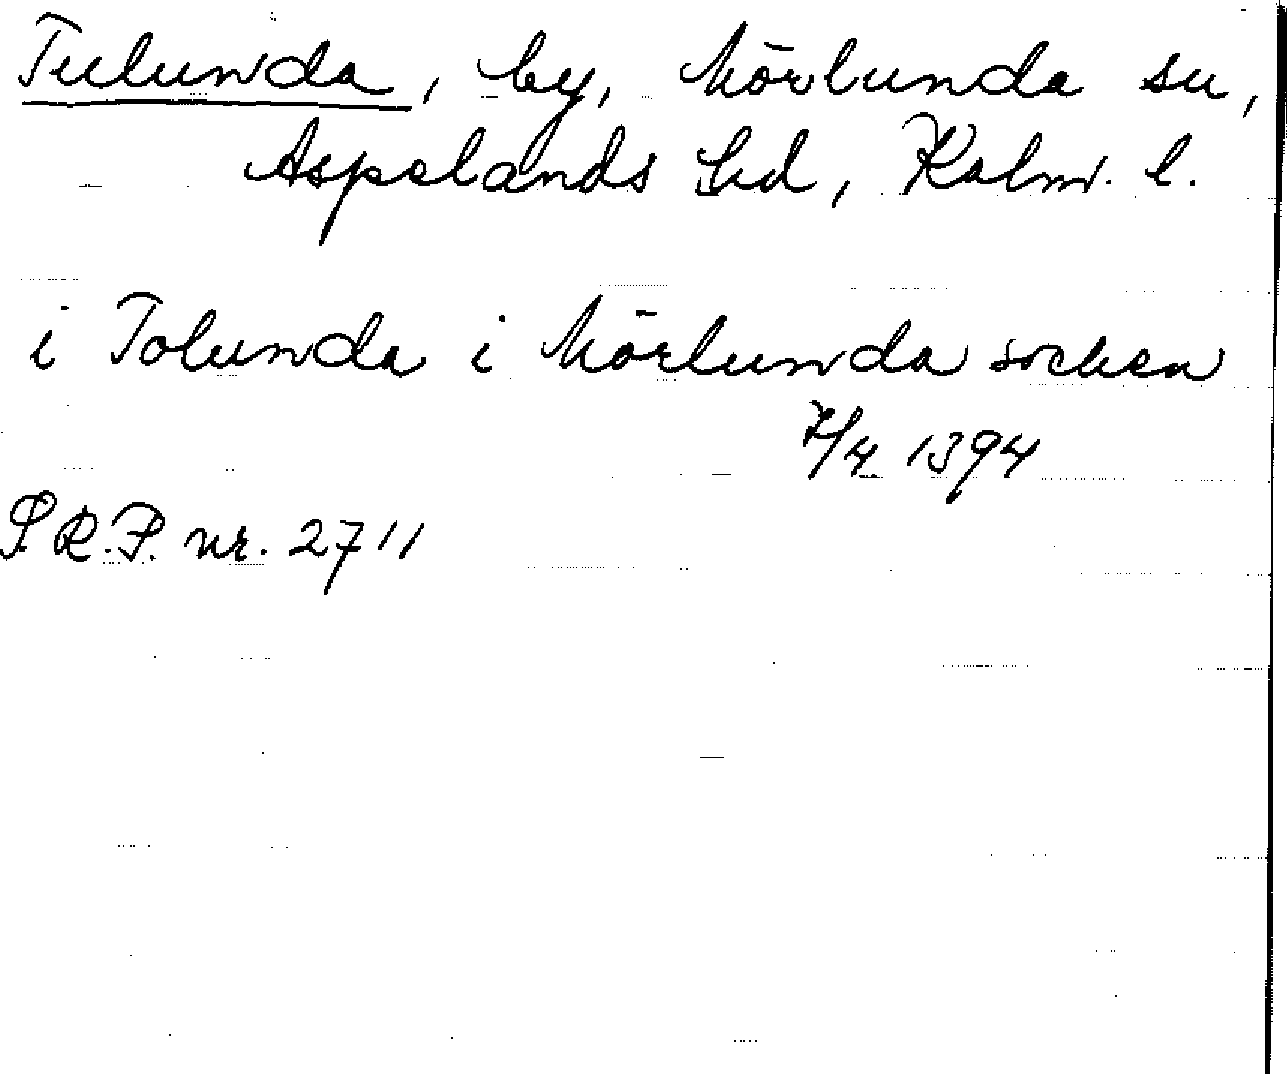 Tulunda, by, Mörlunda sn,
Aspelands hd, Kalm. l.
i Tolunda i Mörlunda socken
7/4 1394
S.R.P. nr. 2711